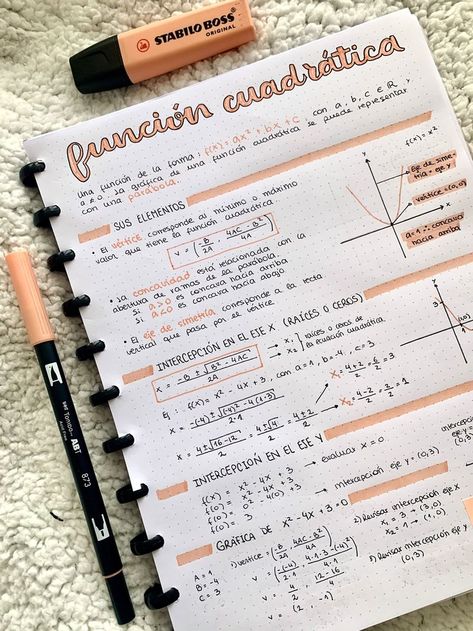 STABILO BOSS
ORIGINAL
función cuadrática
Una función de la forma: f(x) = ax² + bx + c con a, b, c ∈ ℝ y
a ≠ 0. La gráfica de una función cuadrática se puede representar
con una parábola.
SUS ELEMENTOS
• El vértice corresponde al máximo o mínimo
valor que tiene la función cuadrática
V = (-B/2A, 4AC - B²/4A)
• La concavidad está relacionada con la
abertura de ramas de la parábola.
Si a > 0 es concava hacia arriba
Si a < 0 es concava hacia abajo
• El eje de simetría corresponde a la recta
vertical que pasa por el vértice.
f(x) = x²
Eje de sime-
tría = eje y
vértice = (0,0)
a = 1 ∴ concavo
hacia arriba
x
INTERCEPCIÓN EN EL EJE X (RAÍCES O CEROS)
x = -B ± √B² - 4AC / 2A → x₁ x₂ raíces o ceros de
la ecuación cuadrática
Ej: f(x) = x² - 4x + 3, con a = 1, b = -4, c = 3
x = -(-4) ± √(-4)² - 4(1·3) / 2·1
x = 4 ± √16 - 12 / 2 = 4 ± √4 / 2 = 4 ± 2 / 2
x₁ = 4 + 2 / 2 = 6/2 = 3
x₂ = 4 - 2 / 2 = 2/2 = 1
INTERCEPCIÓN EN EL EJE Y
f(x) = x² - 4x + 3 → evaluar x = 0
f(0) = x² - 4x + 3
f(0) = 0² - 4(0) + 3
f(0) = 3 → intercepción eje y (0,3)
GRÁFICA DE x² - 4x + 3 = 0
A = 1
B = -4
C = 3
1) vértice = (-B/2A, 4AC - B²/4A)
V = (-(-4)/2·1, 4·1·3 - (-4)²/4·1)
V = 4/2, 12 - 16/4
V = (2, -1)
2) Revisar intercepción eje x
x₁ = 3 → (3,0)
x₂ = 1 → (1,0)
3) Revisar intercepción eje y
(0,3)
Tombow ABT
873